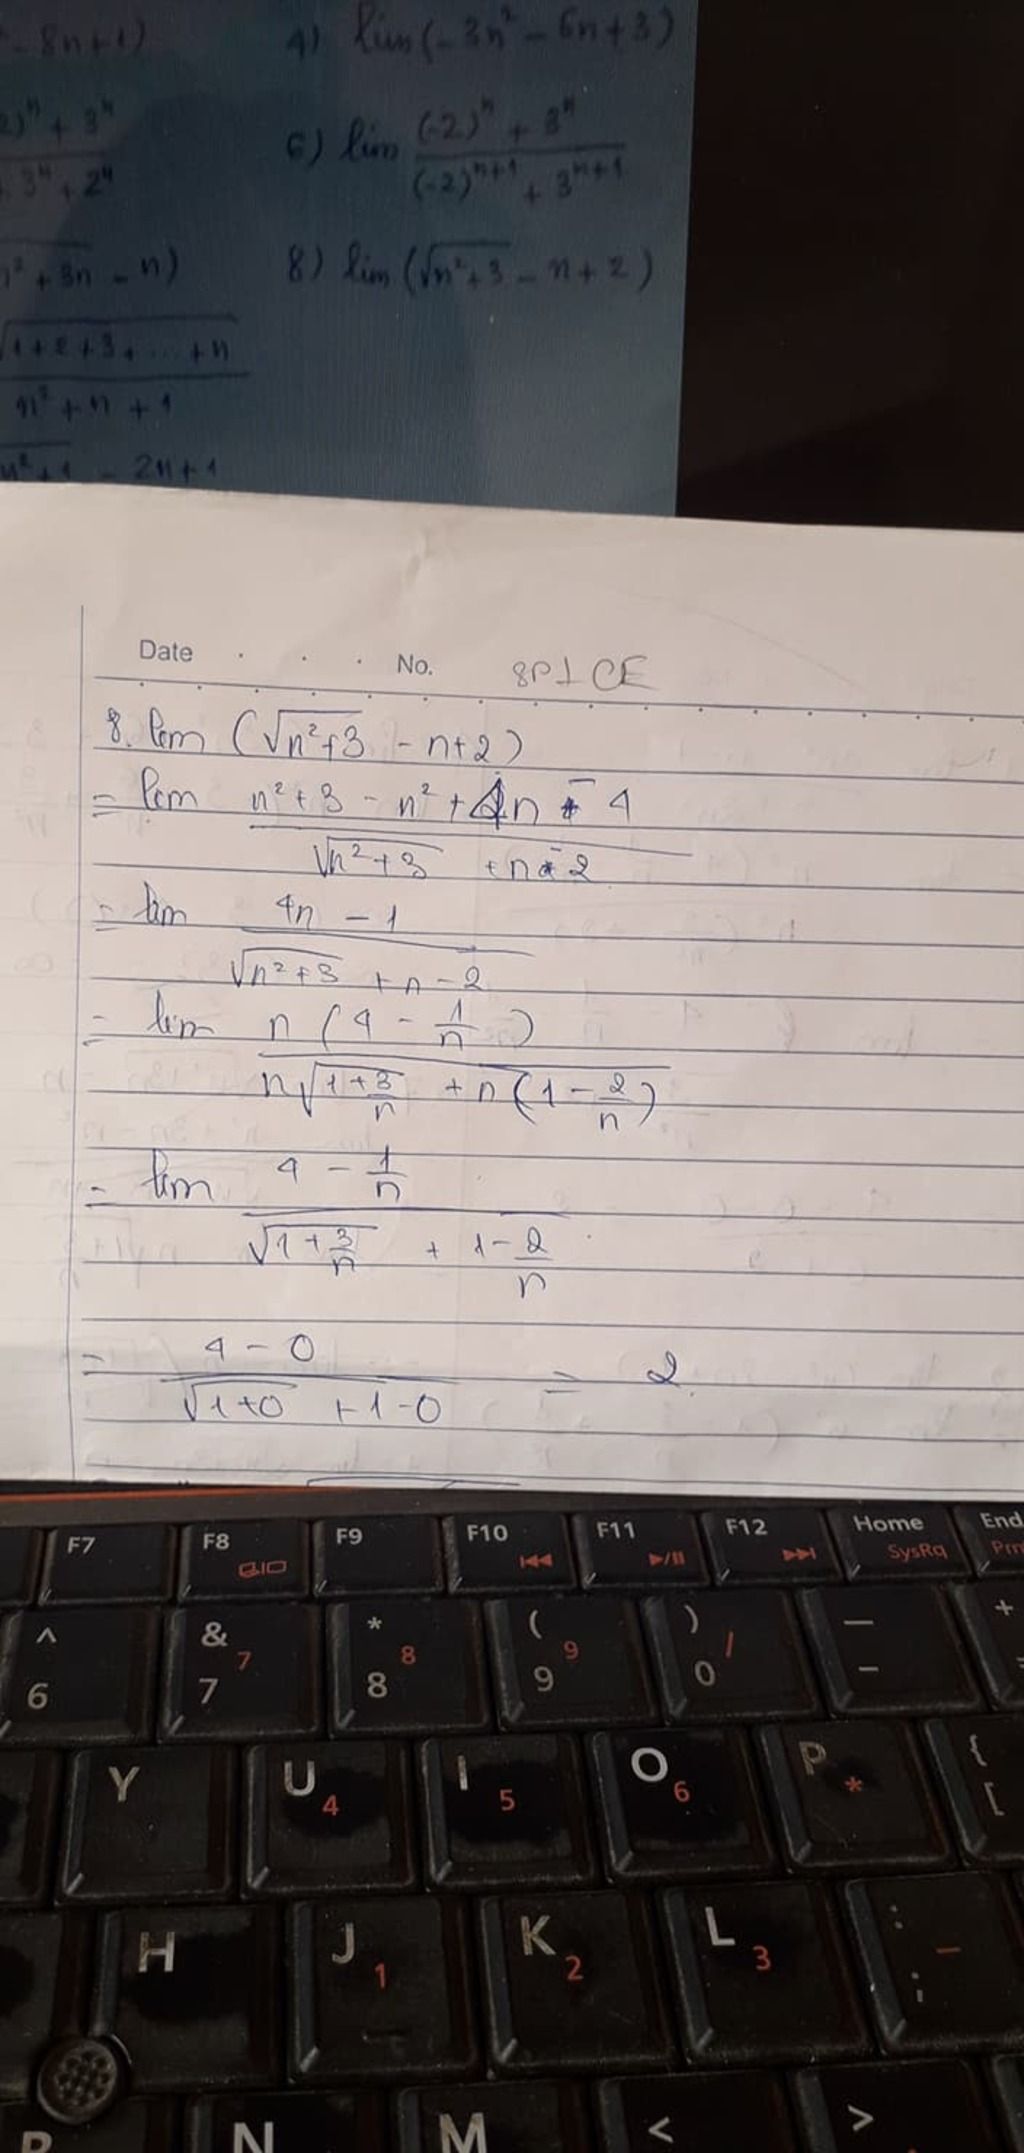 - 8n+1)
4) lim(-3n² - 6n+3)
2)ⁿ + 3ⁿ
3ⁿ + 2ⁿ
6) lim (-2)ⁿ + 3ⁿ
(-2)ⁿ⁺¹ + 3ⁿ⁺¹
n² + 3n - n)
8) lim (√n²+3 - n+2)
√1+2+3+...+n
n² + n + 1
n²+1 - 2n+1
Date . . . No. SPICE
8. lim (√n²+3 - n+2)
= lim n²+3 - n² + 4n - 4
√n²+3 + n - 2
= lim 4n - 1
√n²+3 + n - 2
= lim n (4 - 1/n)
n√1+3/n + n(1 - 2/n)
= lim 4 - 1/n
√1+3/n + 1 - 2/n
= 4 - 0
√1+0 + 1-0 = 2
F7 F8 F9 F10 F11 F12 Home End
SysRq
^ & * ( ) / — +
7 8 9
6 7 8 9 0 –
Y U I O P {
4 5 6 * [
H J K L :
1 2 3 – ;
N M < >